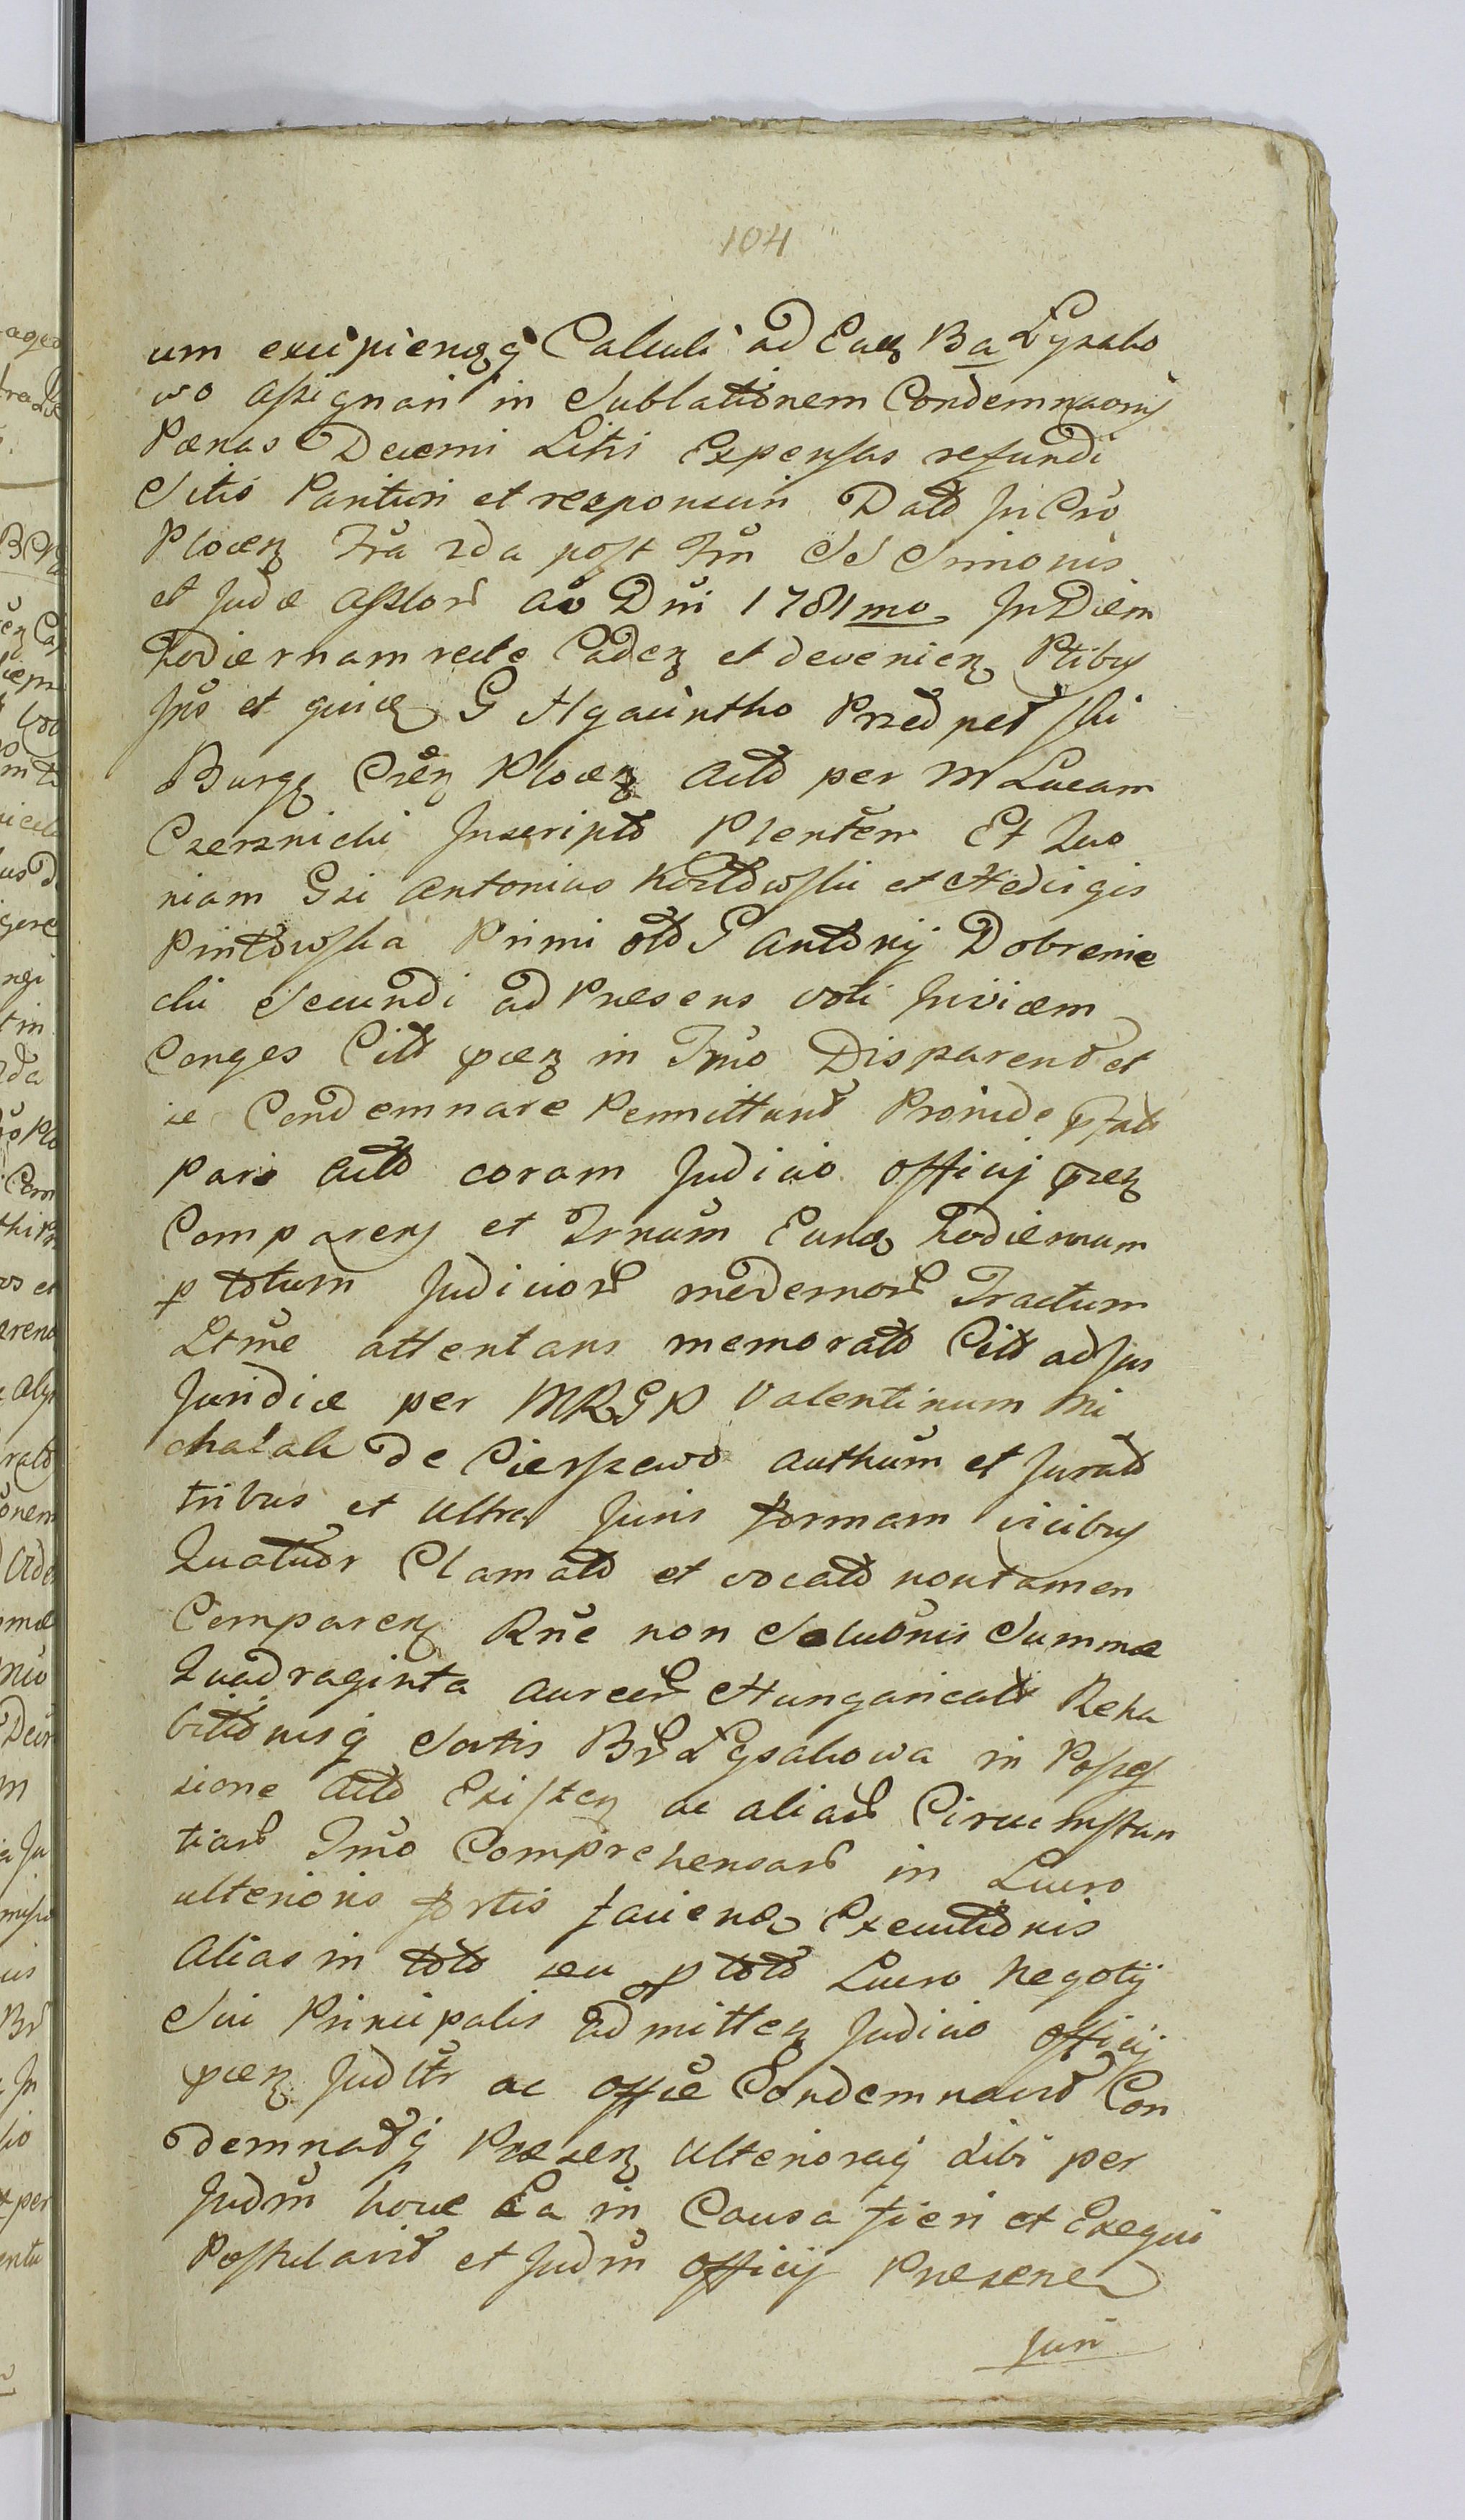 104
um excipiendq Calculi ad Eand Ba Lysako
wo assignari in Sublationem Condemnaonis
Pænas Decerni Litis Expensas refundi
Sitis Parituri et responsuri Datt In Cro
Plocen Fra 2da post Ftm SS Simonis
et Judæ Applor Ao Dni 1781mo In Diem
hodiernam recte Caden et devenien Ptibus
Ins et quide G Hyacintho Przedpełski
Burge Cren Plocen Actt per M Lucam
Czerznicki Inscriptt Plentem Et Quo
niam Gsi Antonius Kozłowski et Hedvigis
Piotrowska Primi olt G Antonij Dobrenie
cki Secundi ad Præsens voti Invicem
Conges Citt pten in Tmo Disparent et
se Condemnare Permittunt Proinde pfatt
Pars Actt coram Judicio Officij pten
Comparens et Trnum Eund hodiernum
p totum Judicior modernor Tractum
Ltme attentans memoratt Citt ad Jus
Juridice per MRGP Valentinum Mi
chalak de Cierszewo Authum et Juratt
tribus et Ultra Juris formam vicibus
Quatuor Clamatt et vocatt non tamen
Comparen Rne non Solutnis Summæ
Quadraginta Aureor Hungaricalt Reha
bitionisq Sortis Br Lysakowa in Posses
sione Actt Existen ac aliar Circumstan
tiar Tmo Comprehensar in Lucro
ulterioris fortis faciend Executionis
Alias in toto seu p toto Lucro Negotij
Sui Principalis admitten Judicio Officij
pten Juditr ac Offie Condemnavit Con
demnatq Præsen Ulterioraq Sibi per
Judm hocce Ea in Causa fieri et Exequi
Postulavit et Judm Officij Præsene
Juri